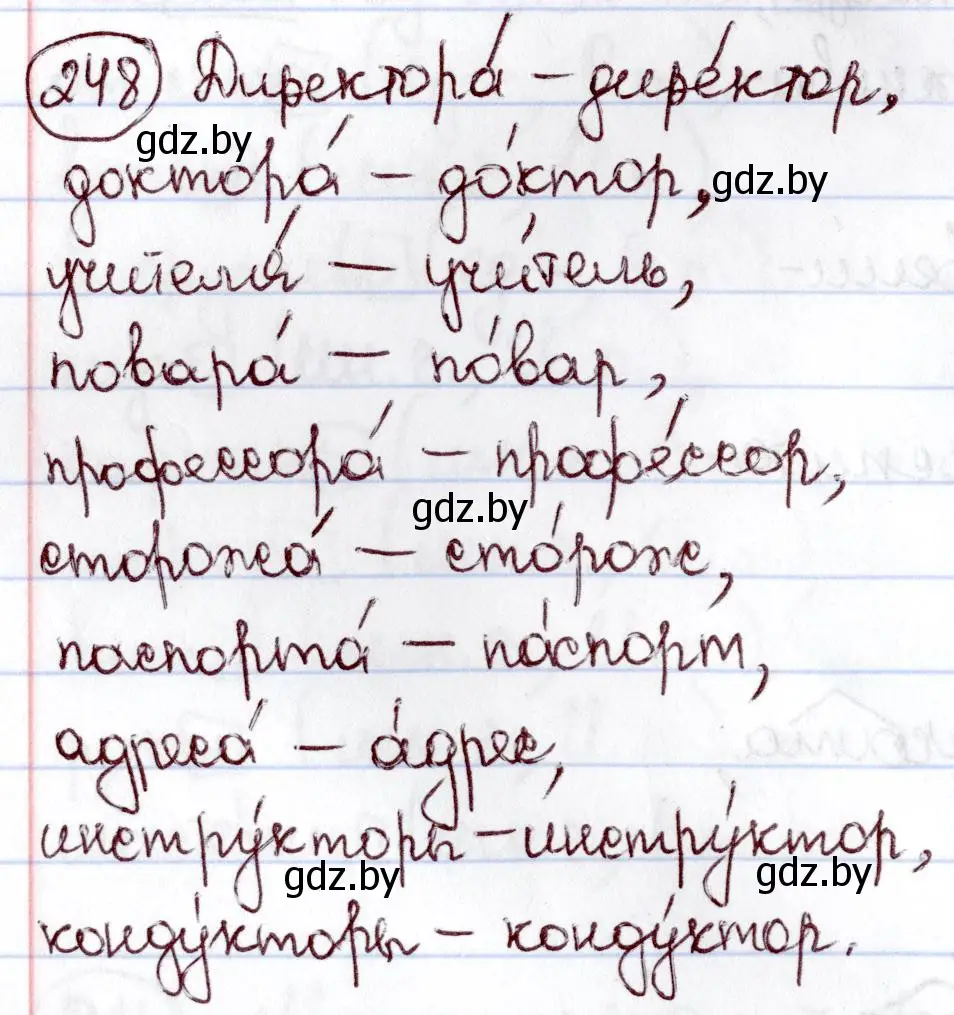 248 Директора́ – дире́ктор,
gdz.by
доктора́ – до́ктор,
gdz.by
учителя́ – учи́тель,
повара́ – по́вар,
профессора́ – профе́ссор,
gdz.by
сторожа́ – сто́рож,
паспорта́ – па́спорт,
адреса́ – а́дрес,
инстру́кторы – инстру́ктор,
gdz.by
gdz.by
конду́кторы – конду́ктор.